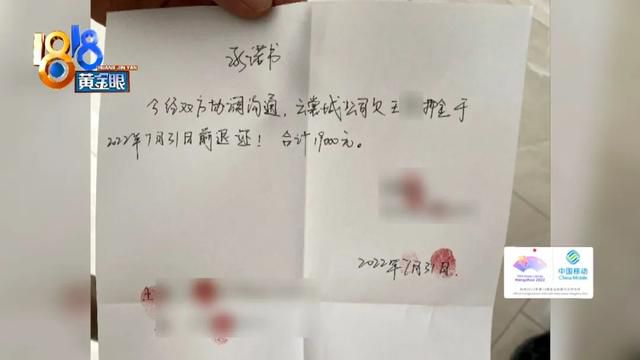 1818
HUANG JIN YAN
黄金眼
承诺书
今经双方协调沟通，云裳城公司欠王 押金于
2022年7月31日前退还！合计1900元。
2022年7月31日.
Hangzhou 2022
中国移动
China Mobile